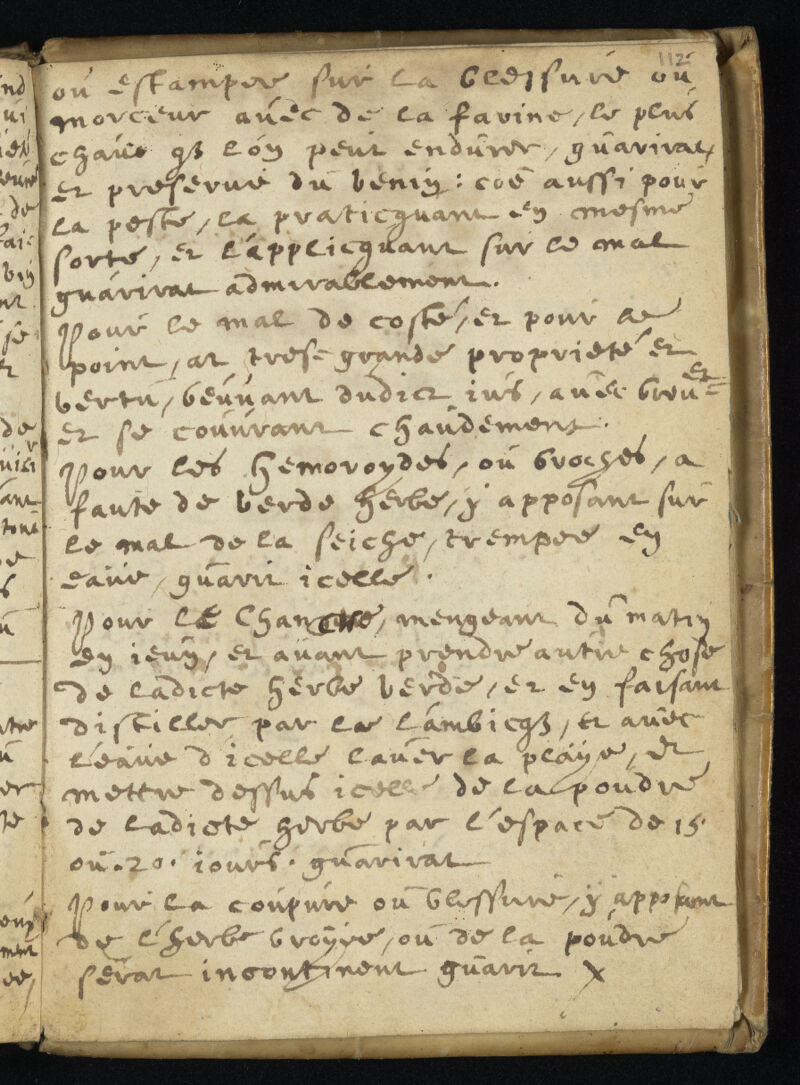 112
ou estampee sur la blessure ou
morceur avec de la farine, le plus
chaud q3 l'on peut endurer, guarirat,
et preserve du venin: coe aussi pour
la peste, la practicquant en mesme
sorte, et l'applicquant sur le mal
guarirat admirablement.
Pour le mal de costé, et pour le
point, at trese grande proprieté et
vertu, beuvant dudict ius, avec breu=et
et se couvrant chaudement.
Pour les hemoroydes, ou broches, a
faute de verde herbe, y apposant sur
le mal de la seiche, trempee en
eaue, guarit icelle.
Pour le Chancre, mengeant du matin
en ieun, et avant prendre autre chose
de ladicte herbe verde, et en faisant
distiller par le lambicq3, et avec
l'eaue d'icelle laver la playe, et
mettre dessus icelle de la poudre
de ladicte herbe par l'espace de 15.
ou .20. iours. guarirat
Pour la coupure ou blessure, y apposant
de l'herbe broyée, ou de la poudre
serat incontinent guarit.